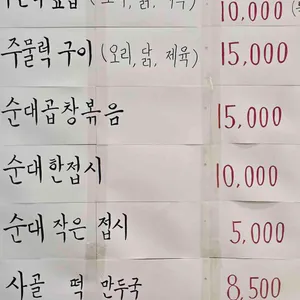 10,000
주물럭 구이 (오리, 닭, 제육) 15,000
순대곱창볶음 15,000
순대 한접시 10,000
순대 작은 접시 5,000
사골 떡 만두국 8,500